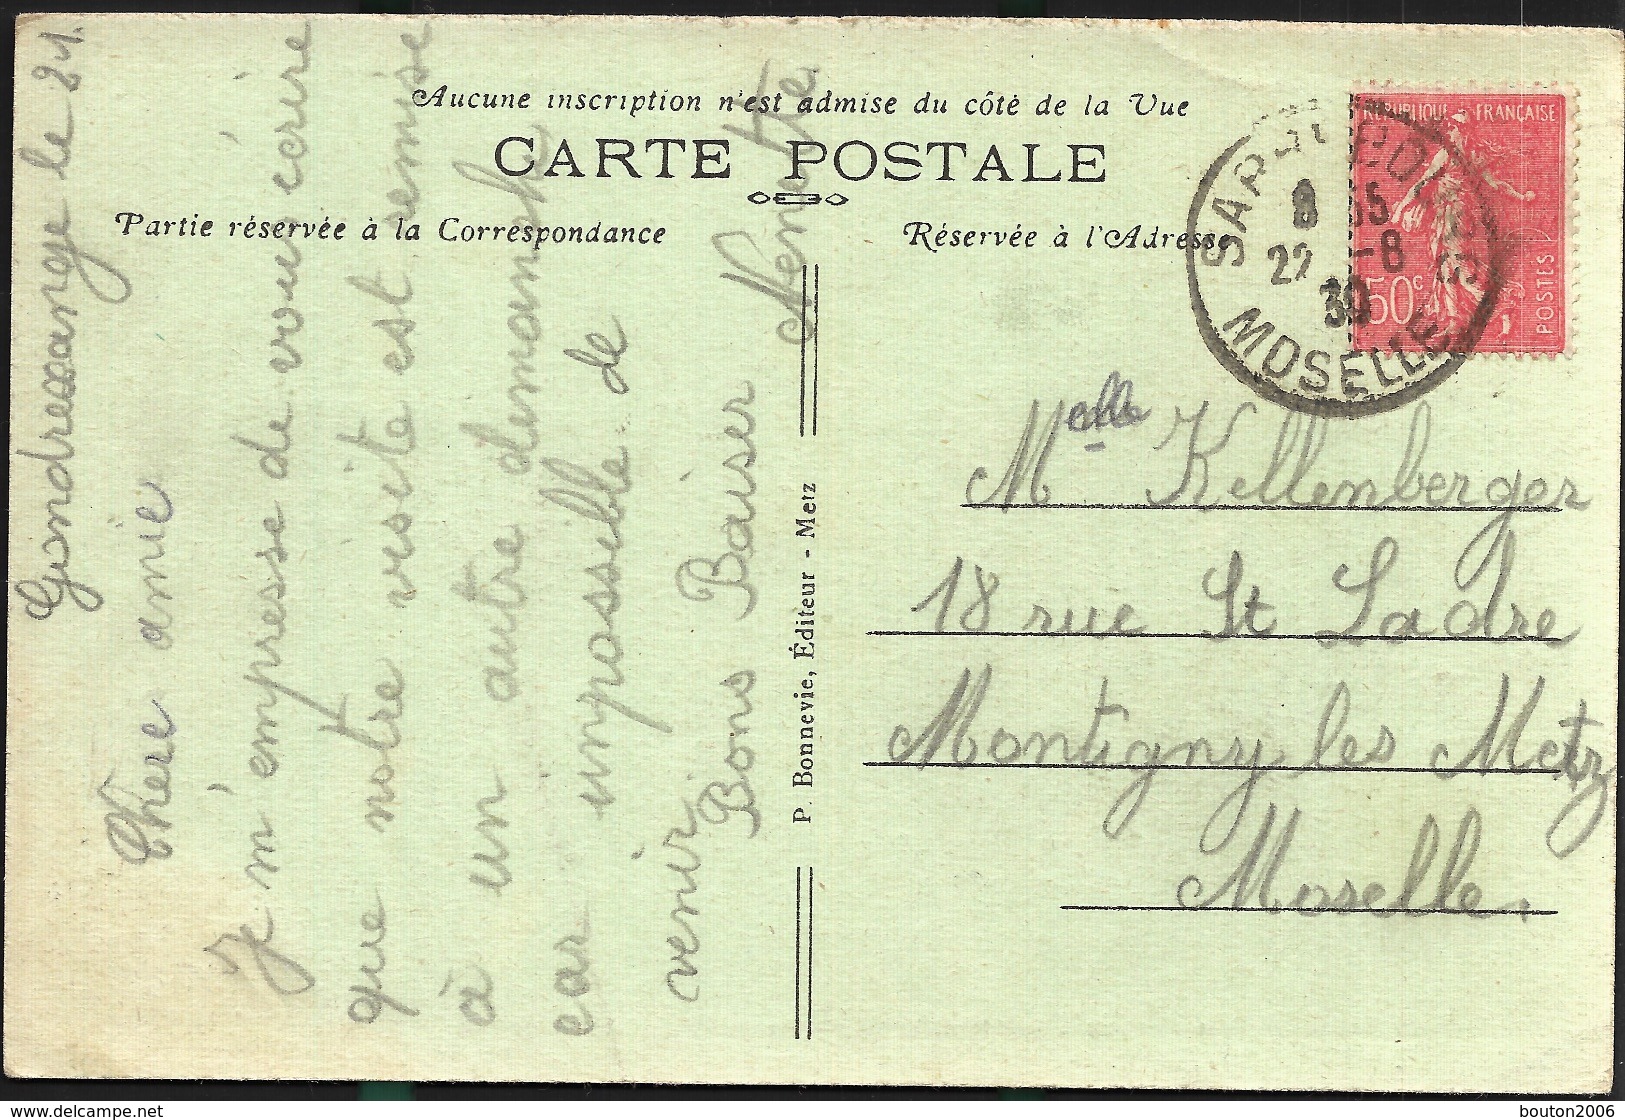 Aucune inscription n'est admise du côté de la Vue
CARTE POSTALE
Partie réservée à la Correspondance
Réservée à l'Adresse
Gundressange le 21.
Chère amie
Je m'empresse de vous écrire
que notre visite est remise
à un autre
car impossible de
venir
Bons Baiser
P. Bonnevie, Éditeur - Metz
RÉPUBLIQUE FRANÇAISE
50c
POSTES
8 35
22 -8
30
MOSELLE
Melle Kellenberger
18 rue St Ladre
Montigny les Metz
Moselle.
delcampe.net
bouton2006